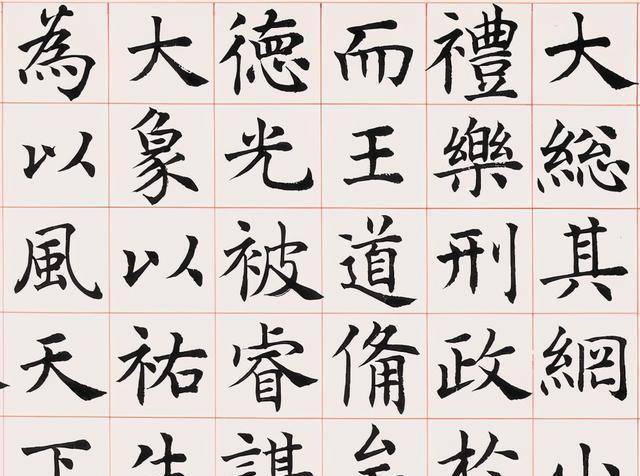 大総其綱
禮樂刑政
而王道備
徳光被睿謀
大象以祐生
為以風天下